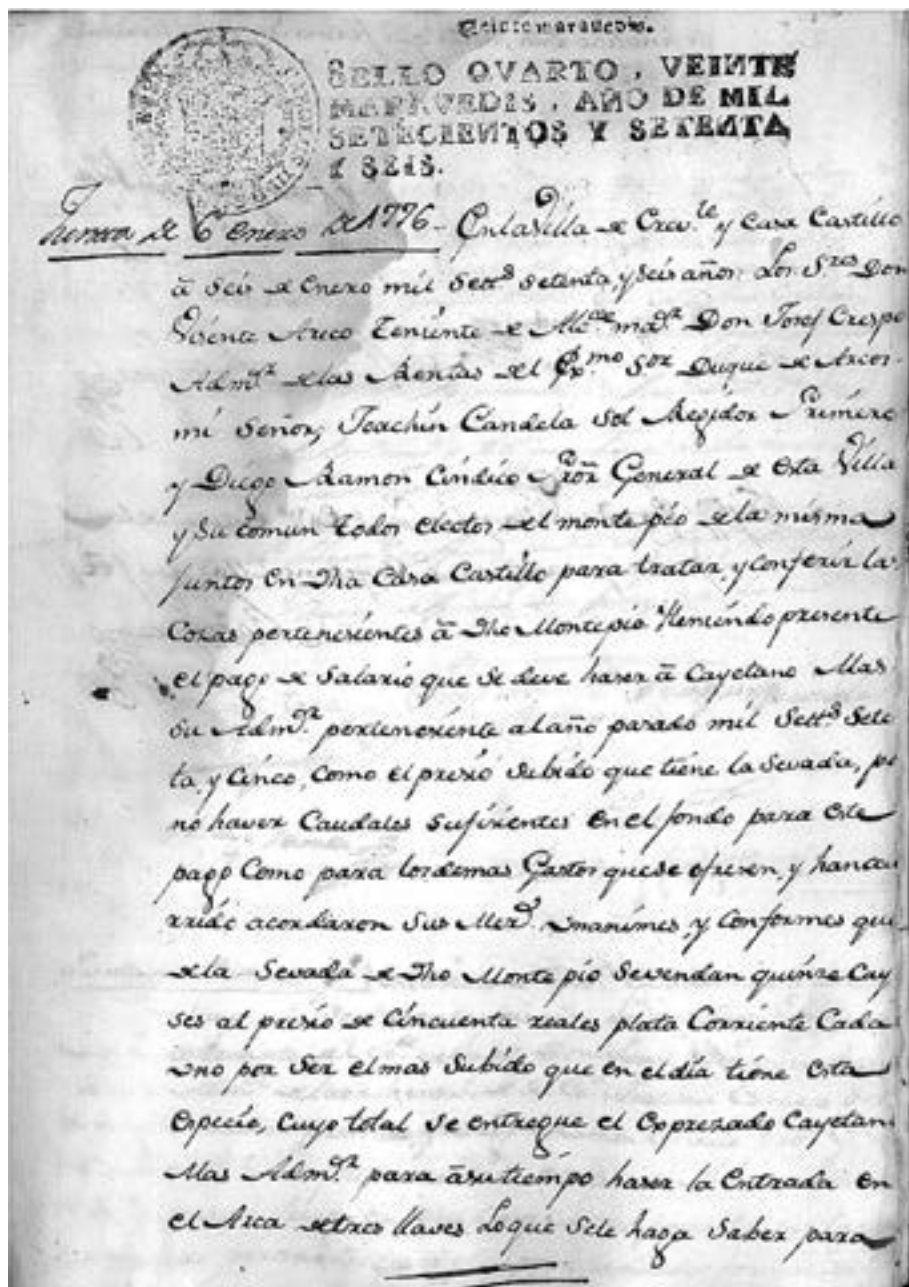 Veinte maravedis.
SELLO QVARTO, VEINTE
MARAVEDIS, AÑO DE MIL
SETECIENTOS Y SETENTA
Y SEIS.
de 6 Enero de 1776 - En la Villa de Crev.te y Casa Castillo
â seis de Enero mil Sett.s setenta, y seis años: Los S.res Don
Visente Areco Teniente de Alc.de m.or Don Josef Crespo
Adm.or de las Rentas del Ex.mo S.or Duque de Arcos
mi Señor, Joachin Candela Sol Regidor Primero
y Diego Ramon Cindico Pror General de esta Villa
y su comun todos electos del monte pio de la misma
juntos en dha Casa Castillo para tratar, y conferir las
Cosas pertenesientes â dho Monte pio Y teniendo presente
el pago de Salario que se deve haser â Cayetano Mas
su Adm.or pertenesiente al año pasado mil Sett.s Seten
ta, y Cinco, como el presio subido que tiene la Sevada, po
no haver Caudales sufisientes en el fondo para este
pago Como para los demas Gastos que se ofresen, y han ocu
rrido acordaron Sus Mer.s Unanimes, y Conformes que
de la Sevada de dho Monte pio Se vendan quinse Cay
ses al presio de Cincuenta reales plata Corriente Cada
uno por Ser el mas Subido que en el dia tiene esta
Especie, Cuyo total se entregue el Expresado Cayetan
Mas Adm.or para â su tiempo haser la Entrada en
el Arca de tres llaves Lo que Se le haga Saber para